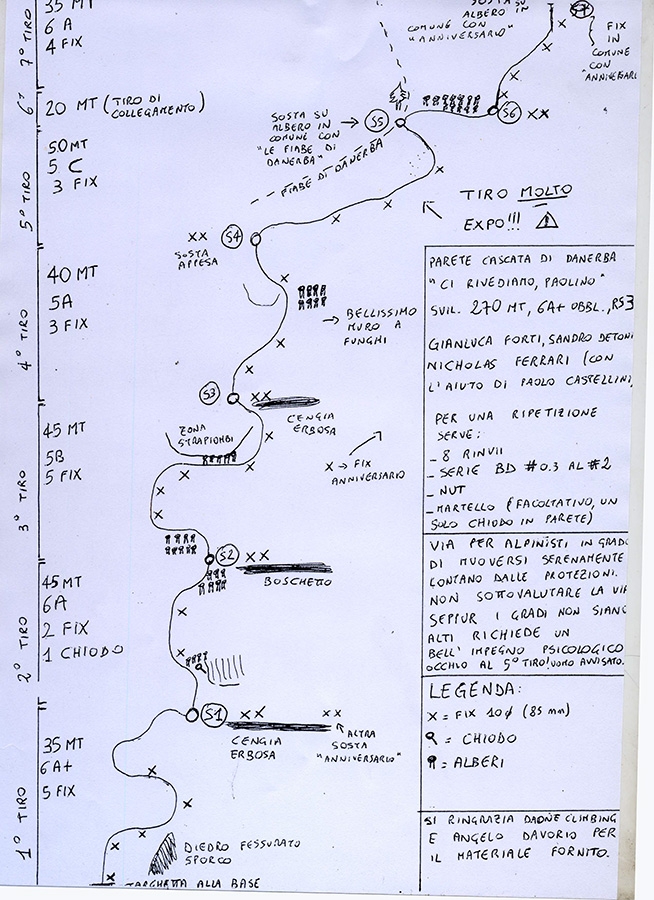 7° TIRO
35 MT
6 A
4 FIX
6° T
20 MT (TIRO DI
COLLEGAMENTO)
5° TIRO
50MT
5 C
3 FIX
4° TIRO
40 MT
5A
3 FIX
3° TIRO
45 MT
5B
5 FIX
2° TIRO
45 MT
6A
2 FIX
1 CHIODO
1° TIRO
35 MT
6A+
5 FIX
SOSTA SU
ALBERO IN
COMUNE CON
"ANNIVERSARIO"
S7
FIX
IN
COMUNE
CON
"ANNIVERSARI
S6
XX
SOSTA SU
ALBERO IN
COMUNE CON
"LE FIABE DI
DANERBA"
S5
FIABE DI DANERBA
TIRO MOLTO
EXPO!!!
XX
S4
SOSTA
APPESA
BELLISSIMO
MURO A
FUNGHI
S3
XX
CENGIA
ERBOSA
ZONA
STRAPIOMBI
X → FIX
ANNIVERSARIO
S2
XX
BOSCHETTO
S1
XX
XX
CENGIA
ERBOSA
ALTRA
SOSTA
"ANNIVERSARIO"
DIEDRO FESSURATO
SPORCO
TARGHETTA ALLA BASE
PARETE CASCATA DI DANERBA
"CI RIVEDIAMO, PAOLINO"
SVIL. 270 MT, 6A+ OBBL., RS3
GIANLUCA FORTI, SANDRO DETONI
NICHOLAS FERRARI (CON
L'AIUTO DI PAOLO CASTELLINI)
PER UNA RIPETIZIONE
SERVE:
- 8 RINVII
- SERIE BD #0.3 AL #2
- NUT
- MARTELLO (FACOLTATIVO, UN
SOLO CHIODO IN PARETE)
VIA PER ALPINISTI IN GRADO
DI MUOVERSI SERENAMENTE
LONTANO DALLE PROTEZIONI.
NON SOTTOVALUTARE LA VIA
SEPPUR I GRADI NON SIANO
ALTI RICHIEDE UN
BELL' IMPEGNO PSICOLOGICO
OCCHIO AL 5° TIRO! UOMO AVVISATO..
LEGENDA:
X = FIX 10ϕ (85 mm)
= CHIODO
= ALBERI
SI RINGRAZIA DAONE CLIMBING
E ANGELO DAVORIO PER
IL MATERIALE FORNITO.